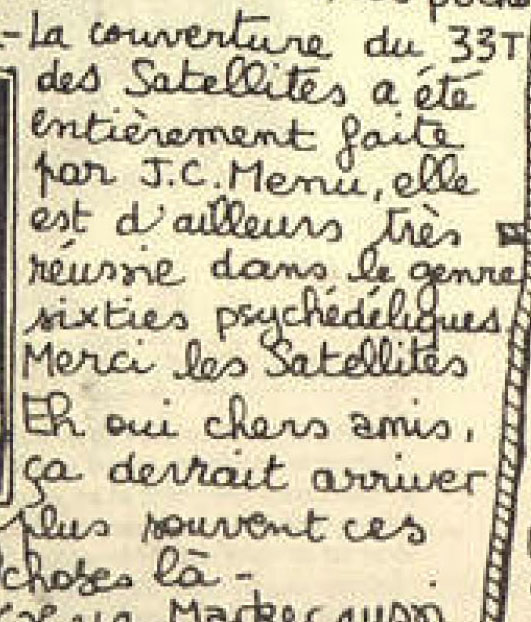 -La couverture du 33T
des Satellites a été
entièrement faite
par J.C. Menu, elle
est d'ailleurs très
réussie dans le genre
sixties psychédéliques.
Merci les Satellites
Eh oui chers amis,
ça devrait arriver
plus souvent ces
choses là -